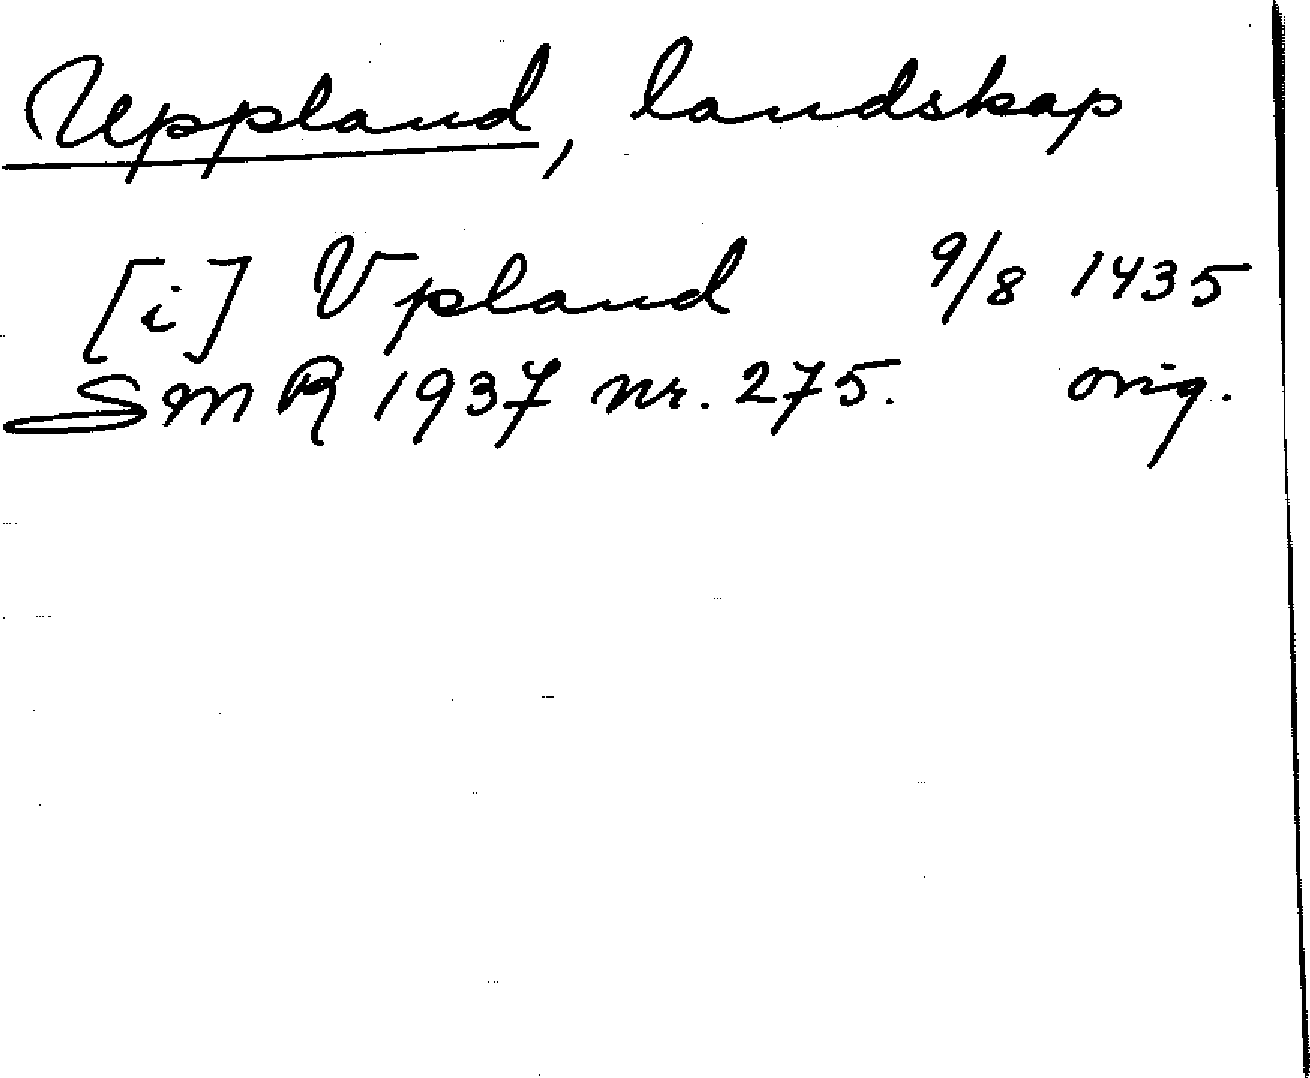 Uppland, landskap
[i] Vpland 9/8 1435
SMR 1937 nr. 275. orig.